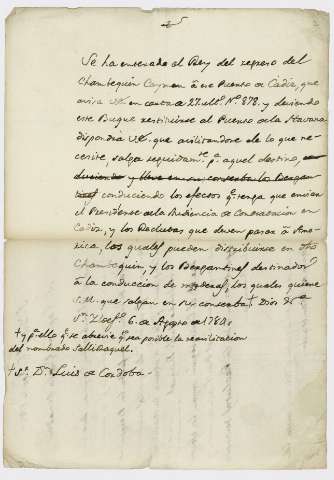 Se ha enterado al Rey del regreso del
Chambequin Carmen â ese Puerto de Cadiz, que
avisa VE. en carta de 27. ult.º Nº 878. y deviendo
este Buque restituirse al Puerto de la Havana
dispondrà VE. que avilitandose de lo que ne-
cesite, salga seguidam.te p.ª aquel destino,
conduciendo los efectos q.e tenga que enviar
el Presidente de la Audiencia de Contratacion en
Cadiz, y los Reclutas que deven pasar â Ame-
rica, los quales pueden distribuirse en dho
Chambequin, y los Bergantines destinados
â la conduccion de maderas, los quales quiere
S.M. que salgan en su conserba † Dios &.ª
S.n Ildef.º 6. de Agosto de 1781.
† y p.ª ello q.e se abrevie q.to sea posible la reavilitacion
del nombrado
† S.r D.n Luis de Cordoba.